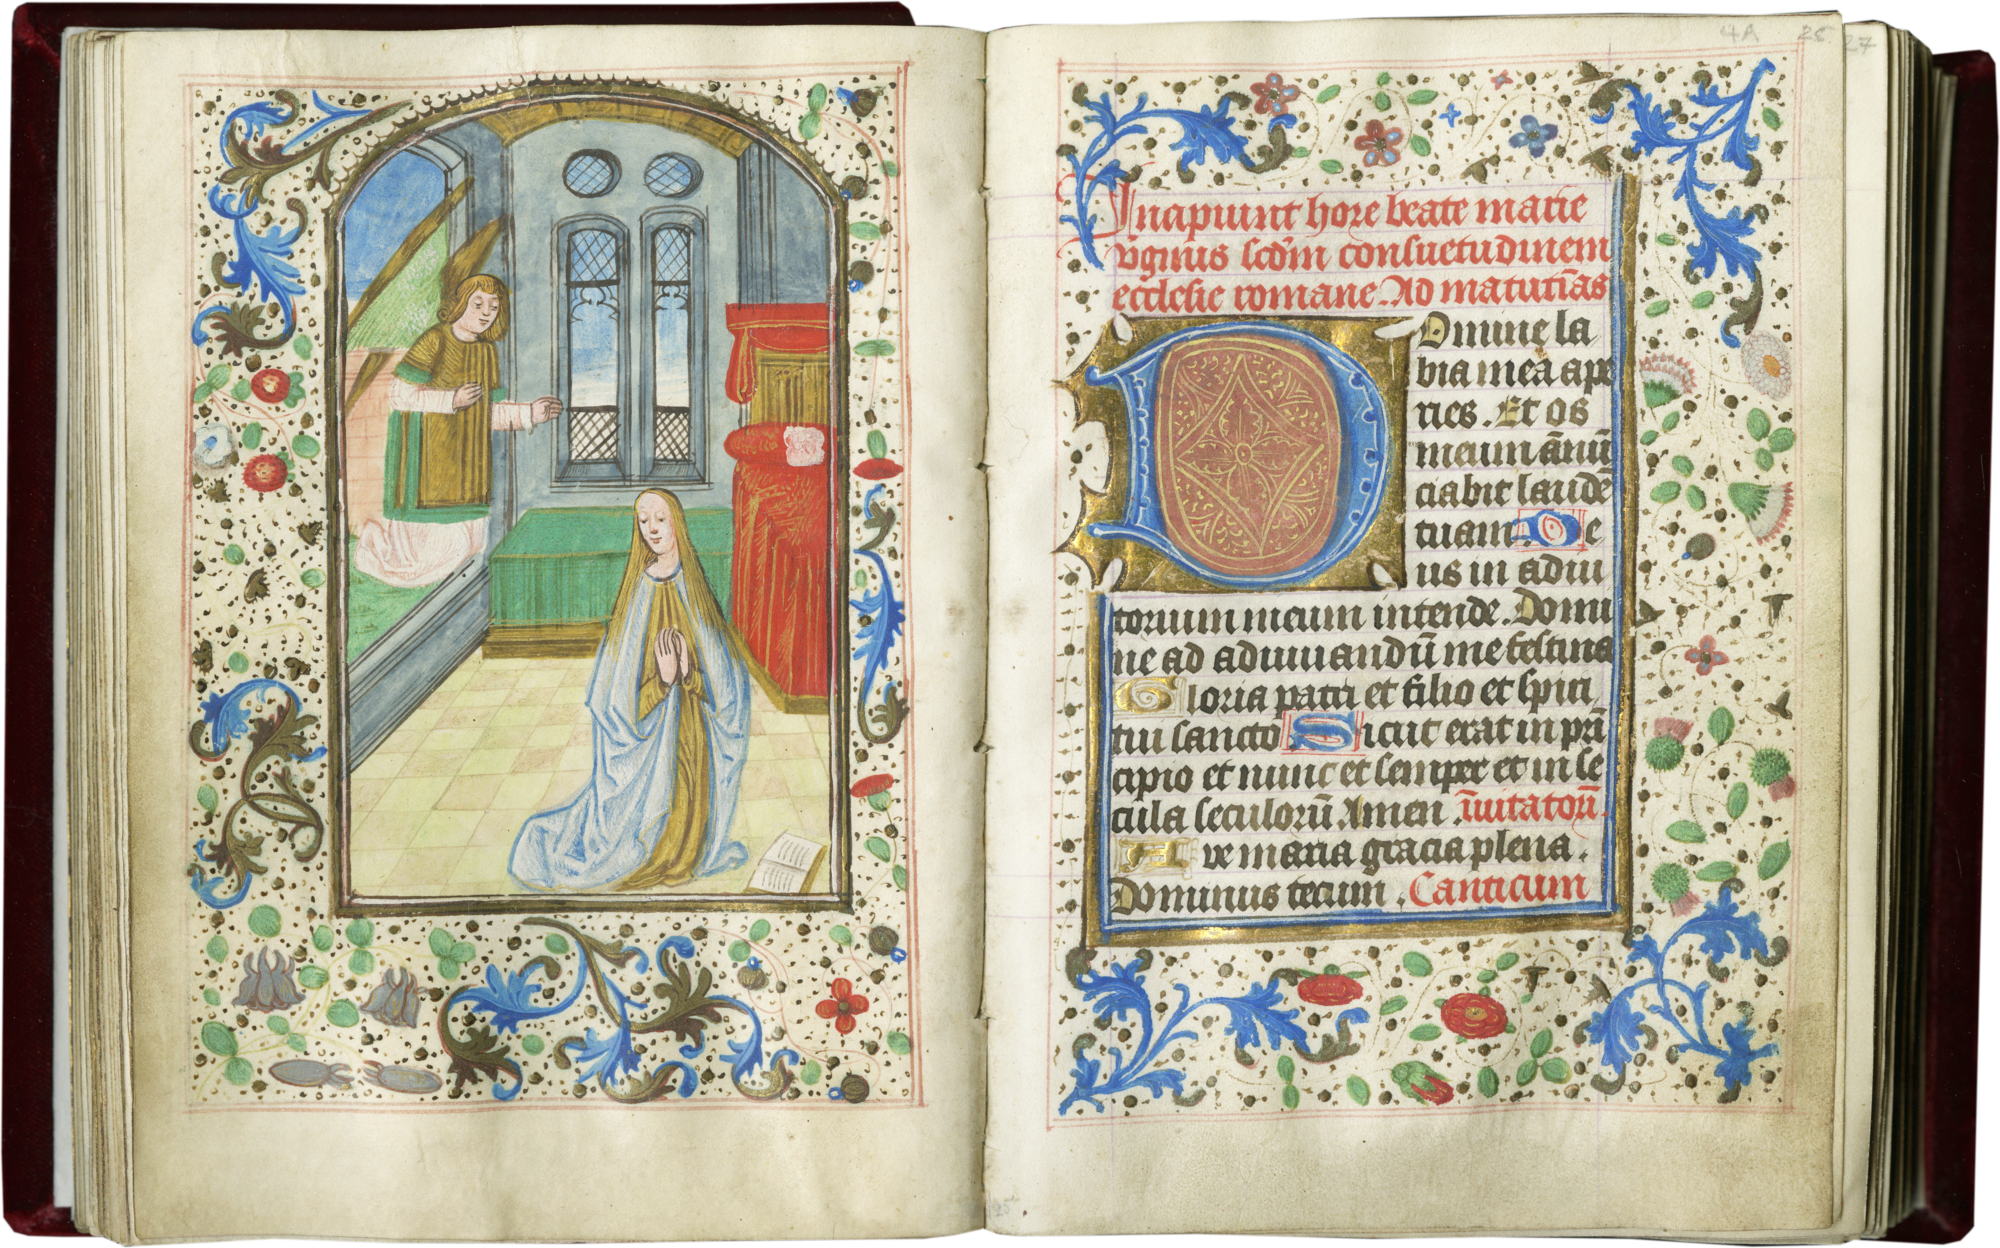 4A 26 27
Incipiunt hore beate marie
v̄ginis scd̄m consuetudinem
ecclesie romane. Ad matutīas
Domine la
bia mea ape
ries. Et os
meum ānū
ciabit laudē
tuam. De
us in adiu
torium meum intende. Domi
ne ad adiuuandū me festina
Gloria patri et filio et spiri
tui sancto Sicut erat in prī
cipio et nunc et semper et in se
cula seculorū Amen. īuitatoriū.
Ave maria gracia plena.
Dominus tecum. Canticum